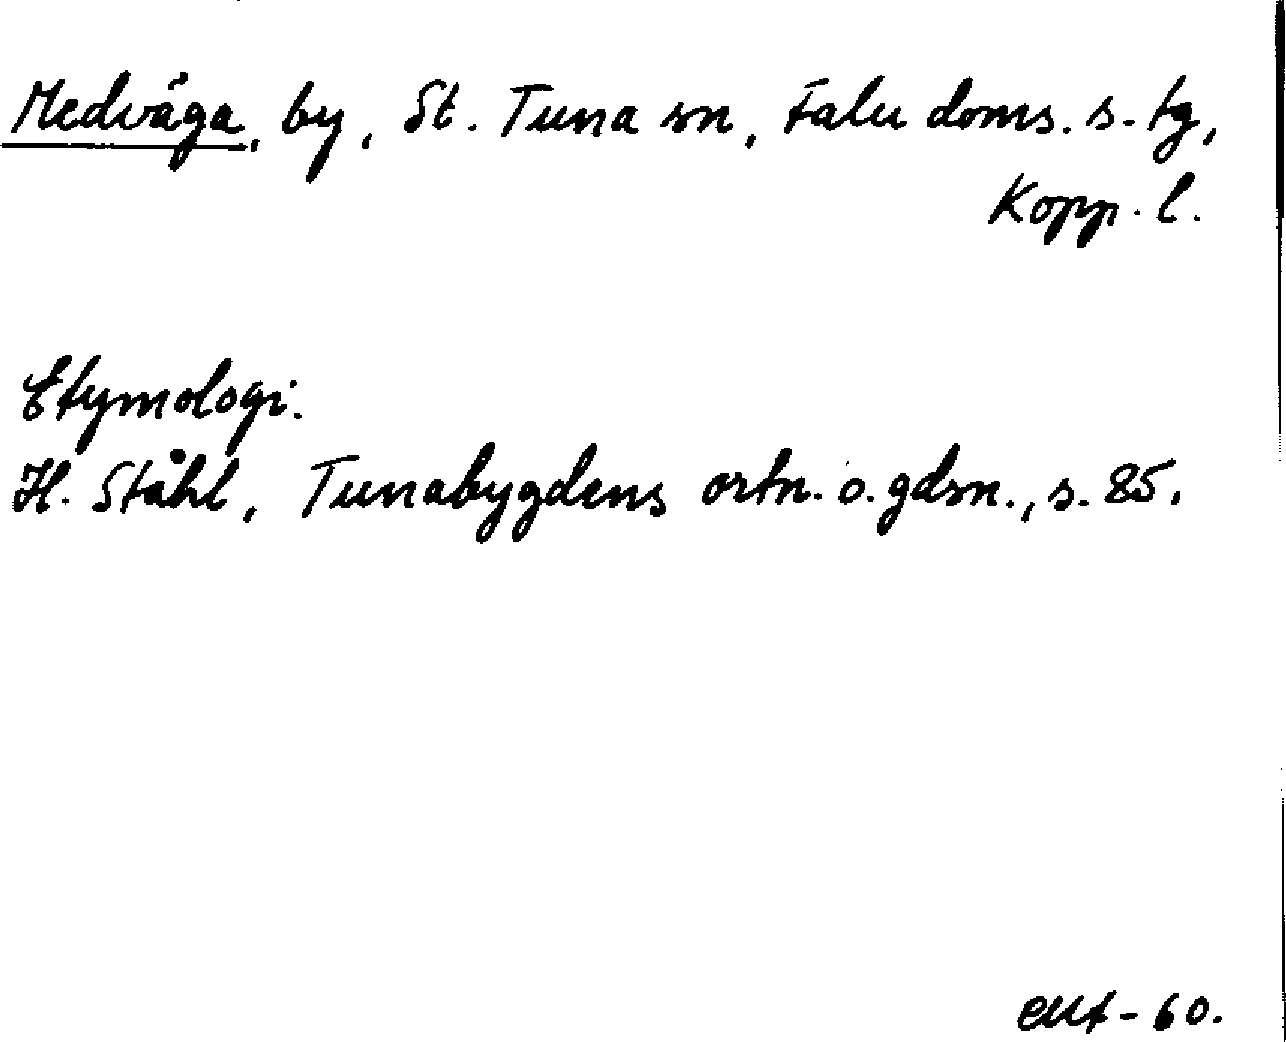 Medväga, by, St. Tuna sn, Falu doms. s. tg,
Kopp. l.
Etymologi.
H. Ståhl, Tunabygdens ortn. o. gdsn., s. 85.
60.